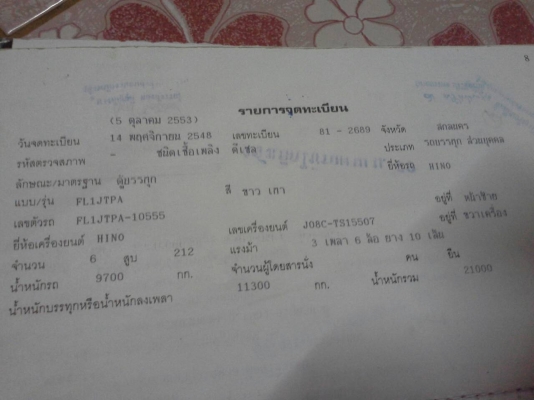 8
รายการจดทะเบียน
(5 ตุลาคม 2553)
วันจดทะเบียน 14 พฤศจิกายน 2548 เลขทะเบียน 81 - 2689 จังหวัด สกลนคร
รหัสตรวจสภาพ - ชนิดเชื้อเพลิง ดีเซล ประเภท รถบรรทุก ส่วนบุคคล
ลักษณะ/มาตรฐาน ตู้บรรทุก ยี่ห้อรถ HINO
แบบ/รุ่น FL1JTPA สี ขาว เทา
เลขตัวรถ FL1JTPA-10555 อยู่ที่ หน้าซ้าย
ยี่ห้อเครื่องยนต์ HINO เลขเครื่องยนต์ J08C-TS15507 อยู่ที่ ขวาเครื่อง
จำนวน 6 สูบ 212 แรงม้า 3 เพลา 6 ล้อ ยาง 10 เส้น
น้ำหนักรถ 9700 กก. จำนวนผู้โดยสารนั่ง คน ยืน
น้ำหนักบรรทุกหรือน้ำหนักลงเพลา 11300 กก. น้ำหนักรวม 21000